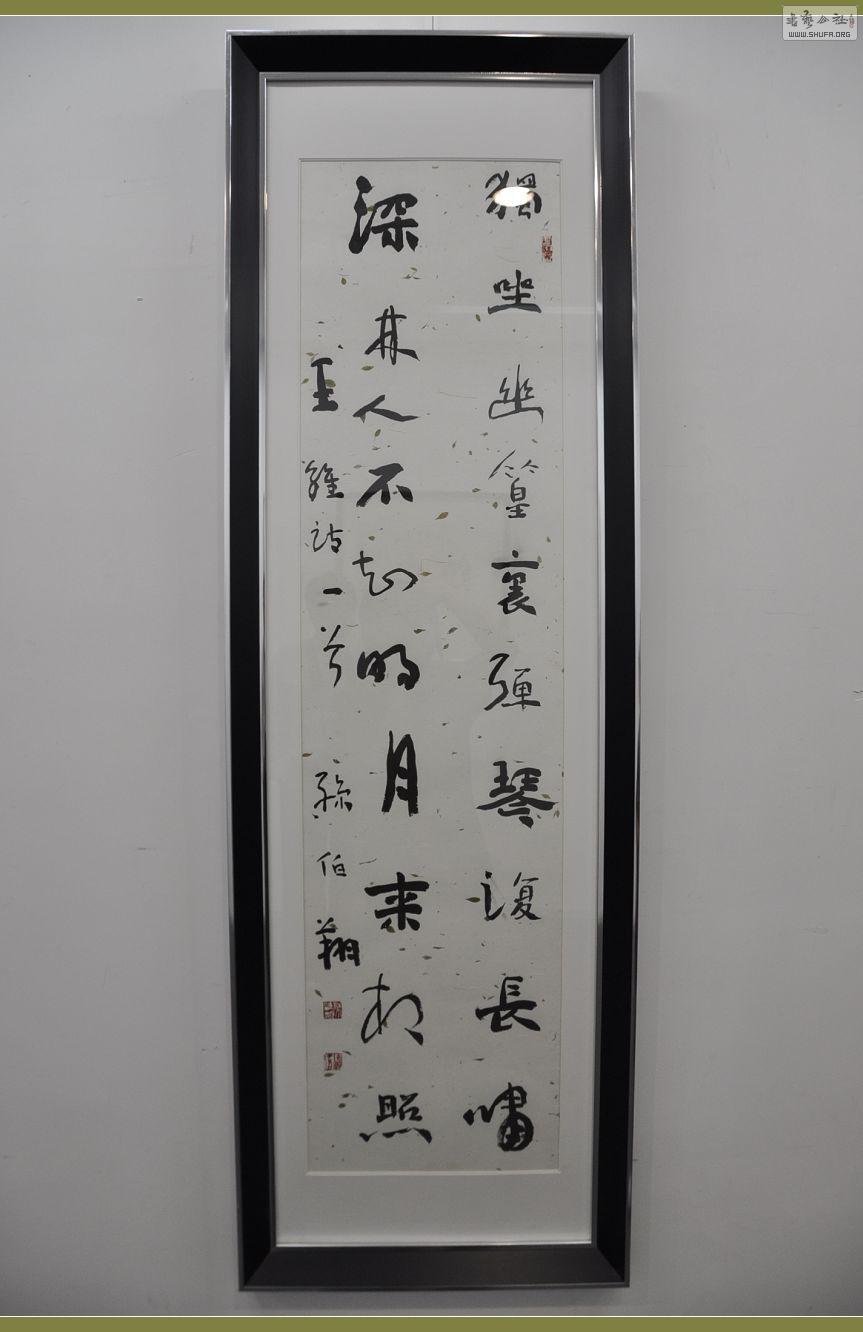 獨坐幽篁裏彈琴復長嘯
深林人不知明月来相照
王維詩一首 孫伯翔
书艺公社
WWW.SHUFA.ORG